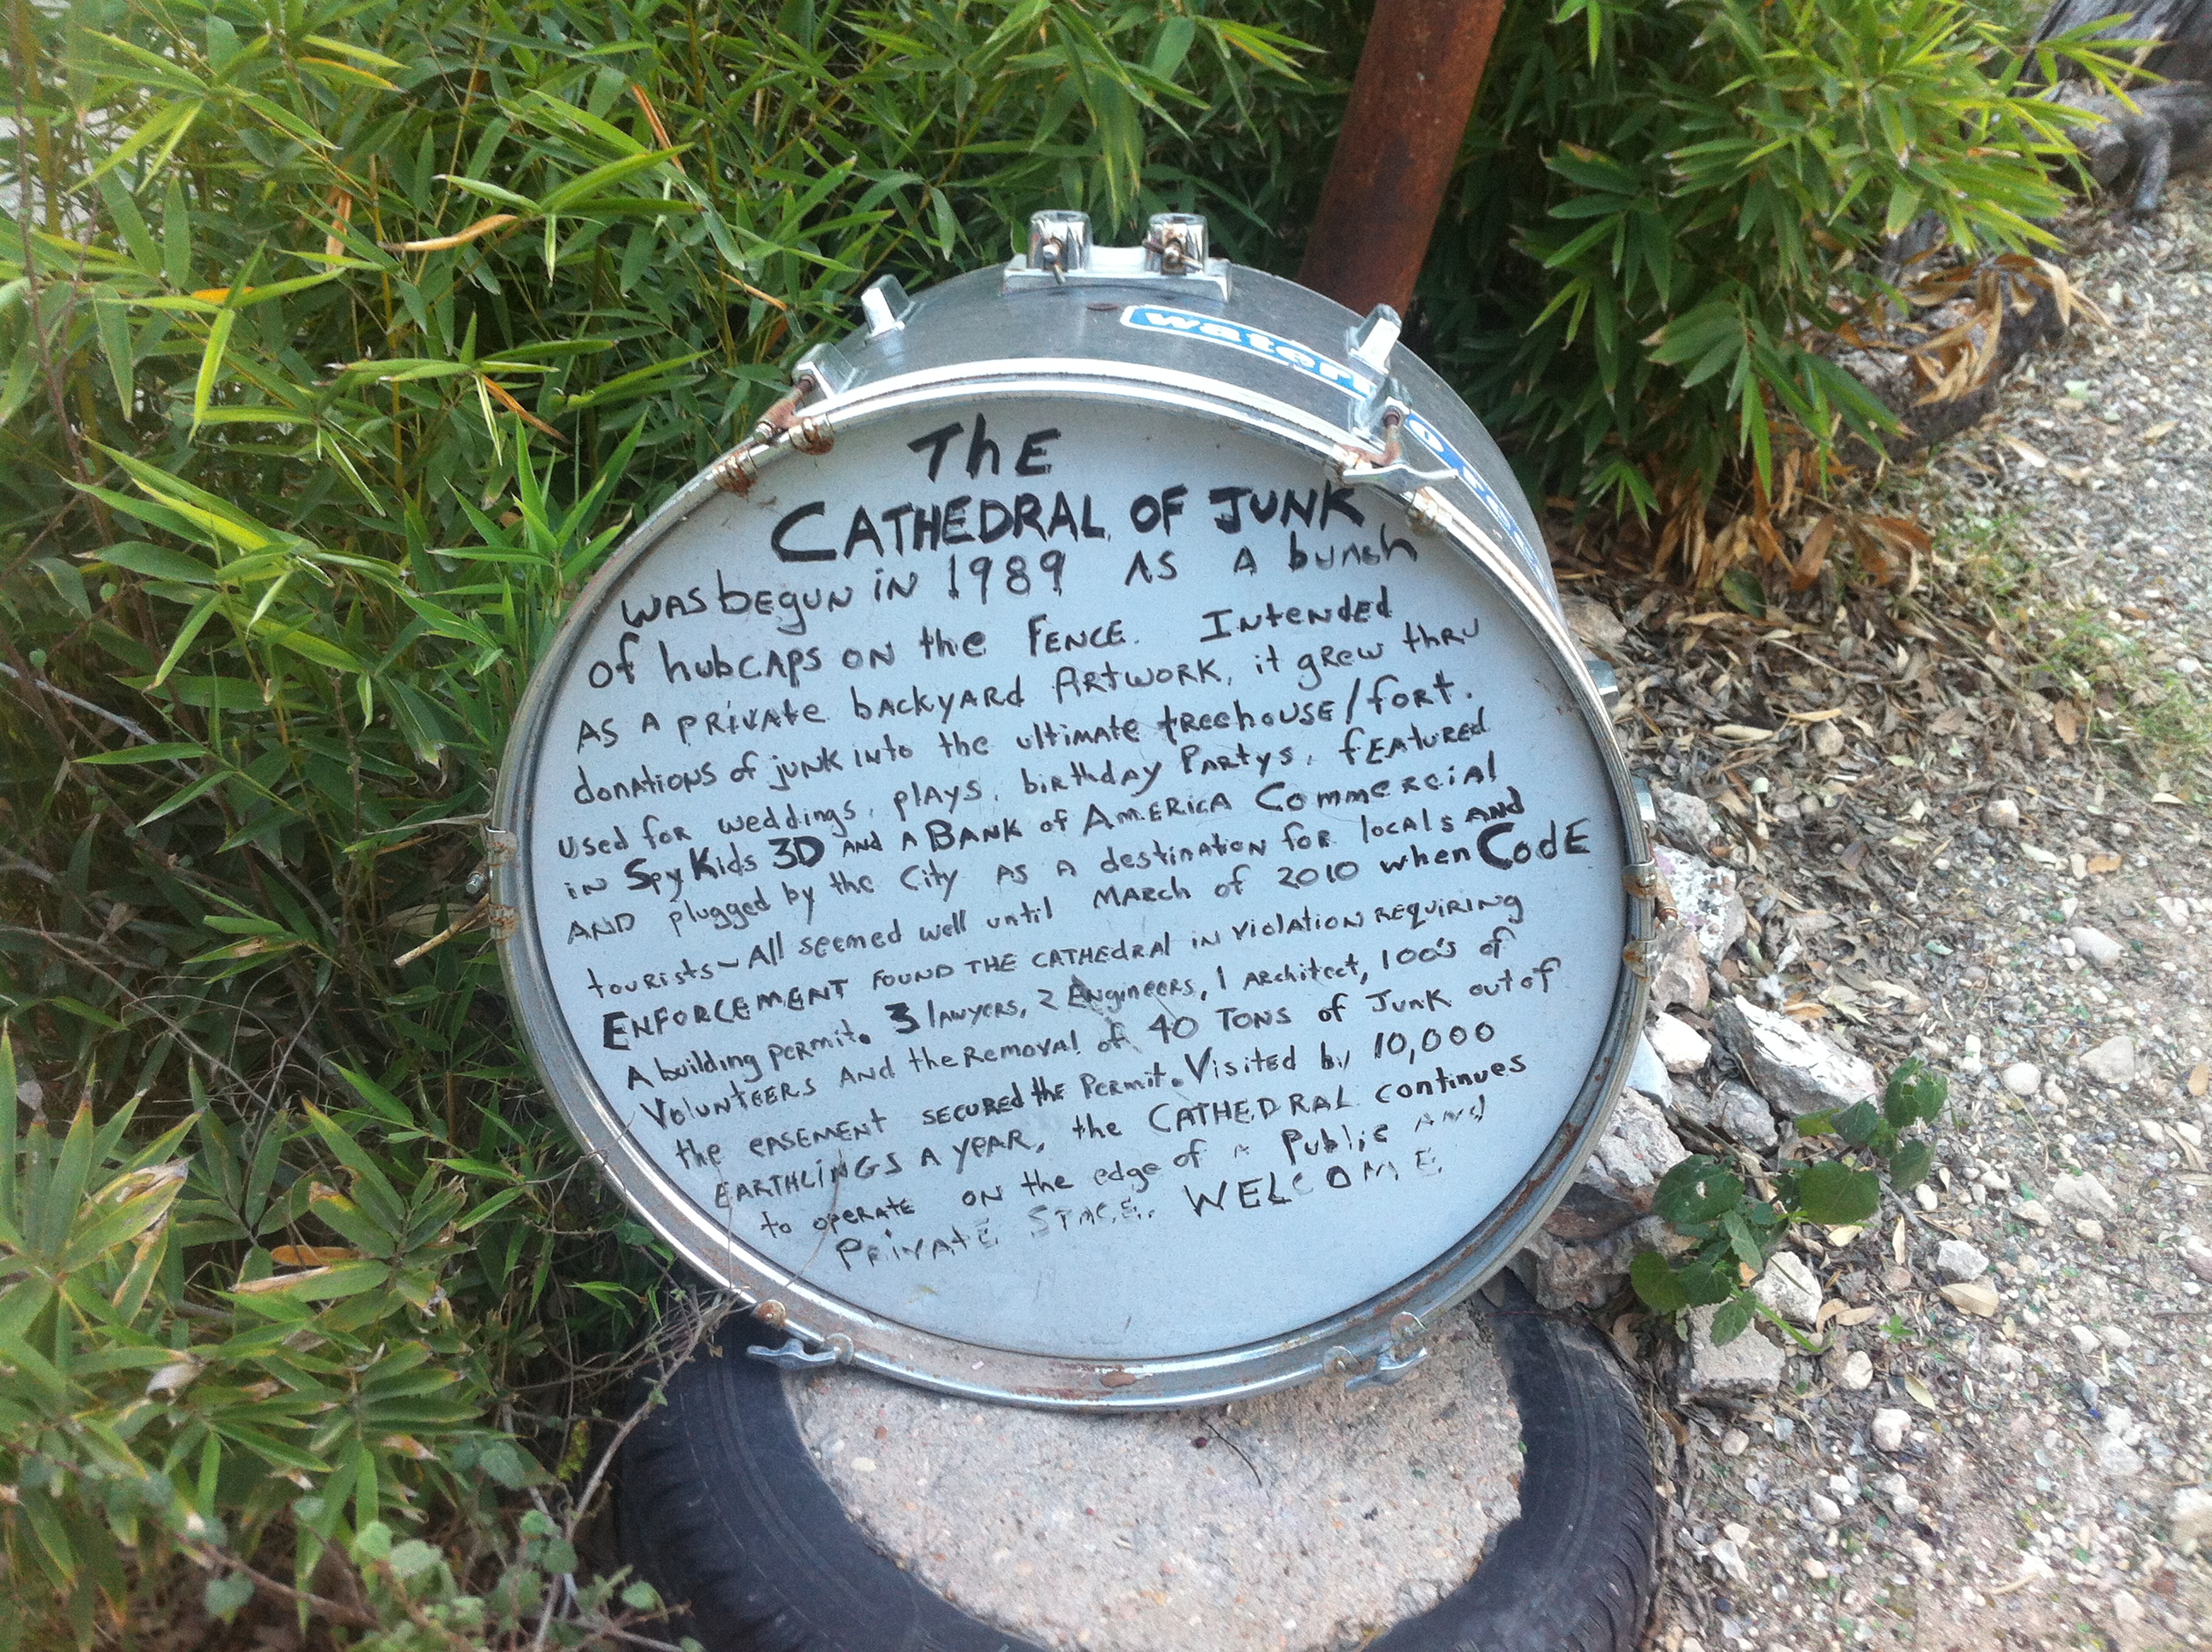 waterl
ThE
CATHEDRAL OF JUNK
was begun in 1989 As A bunch
of hubcaps on the FENCE. Intended
As A private backyard Artwork, it grew thru
donations of junk into the ultimate treehouse/fort.
Used for weddings, plays, birthday Partys. fEATured
in Spy Kids 3D AND A BANK of AMERICA Commercial
AND plugged by the City AS A destination for locals AND
tourists~All seemed well until MARch of 2010 when CodE
ENFORCEMENT FOUND THE CATHEDRAL in violation REQUIRING
A building permit. 3 lawyers, 2 Engineers, 1 Architect, 100's of
VolunTEERS AND the Removal of 40 TONS of Junk out of
the easement secured the Permit. Visited by 10,000
EARTHLINGS A YEAR, the CATHEDRAL continues
to operate on the edge of A Public And
PRivAtE SPACE. WELCOME